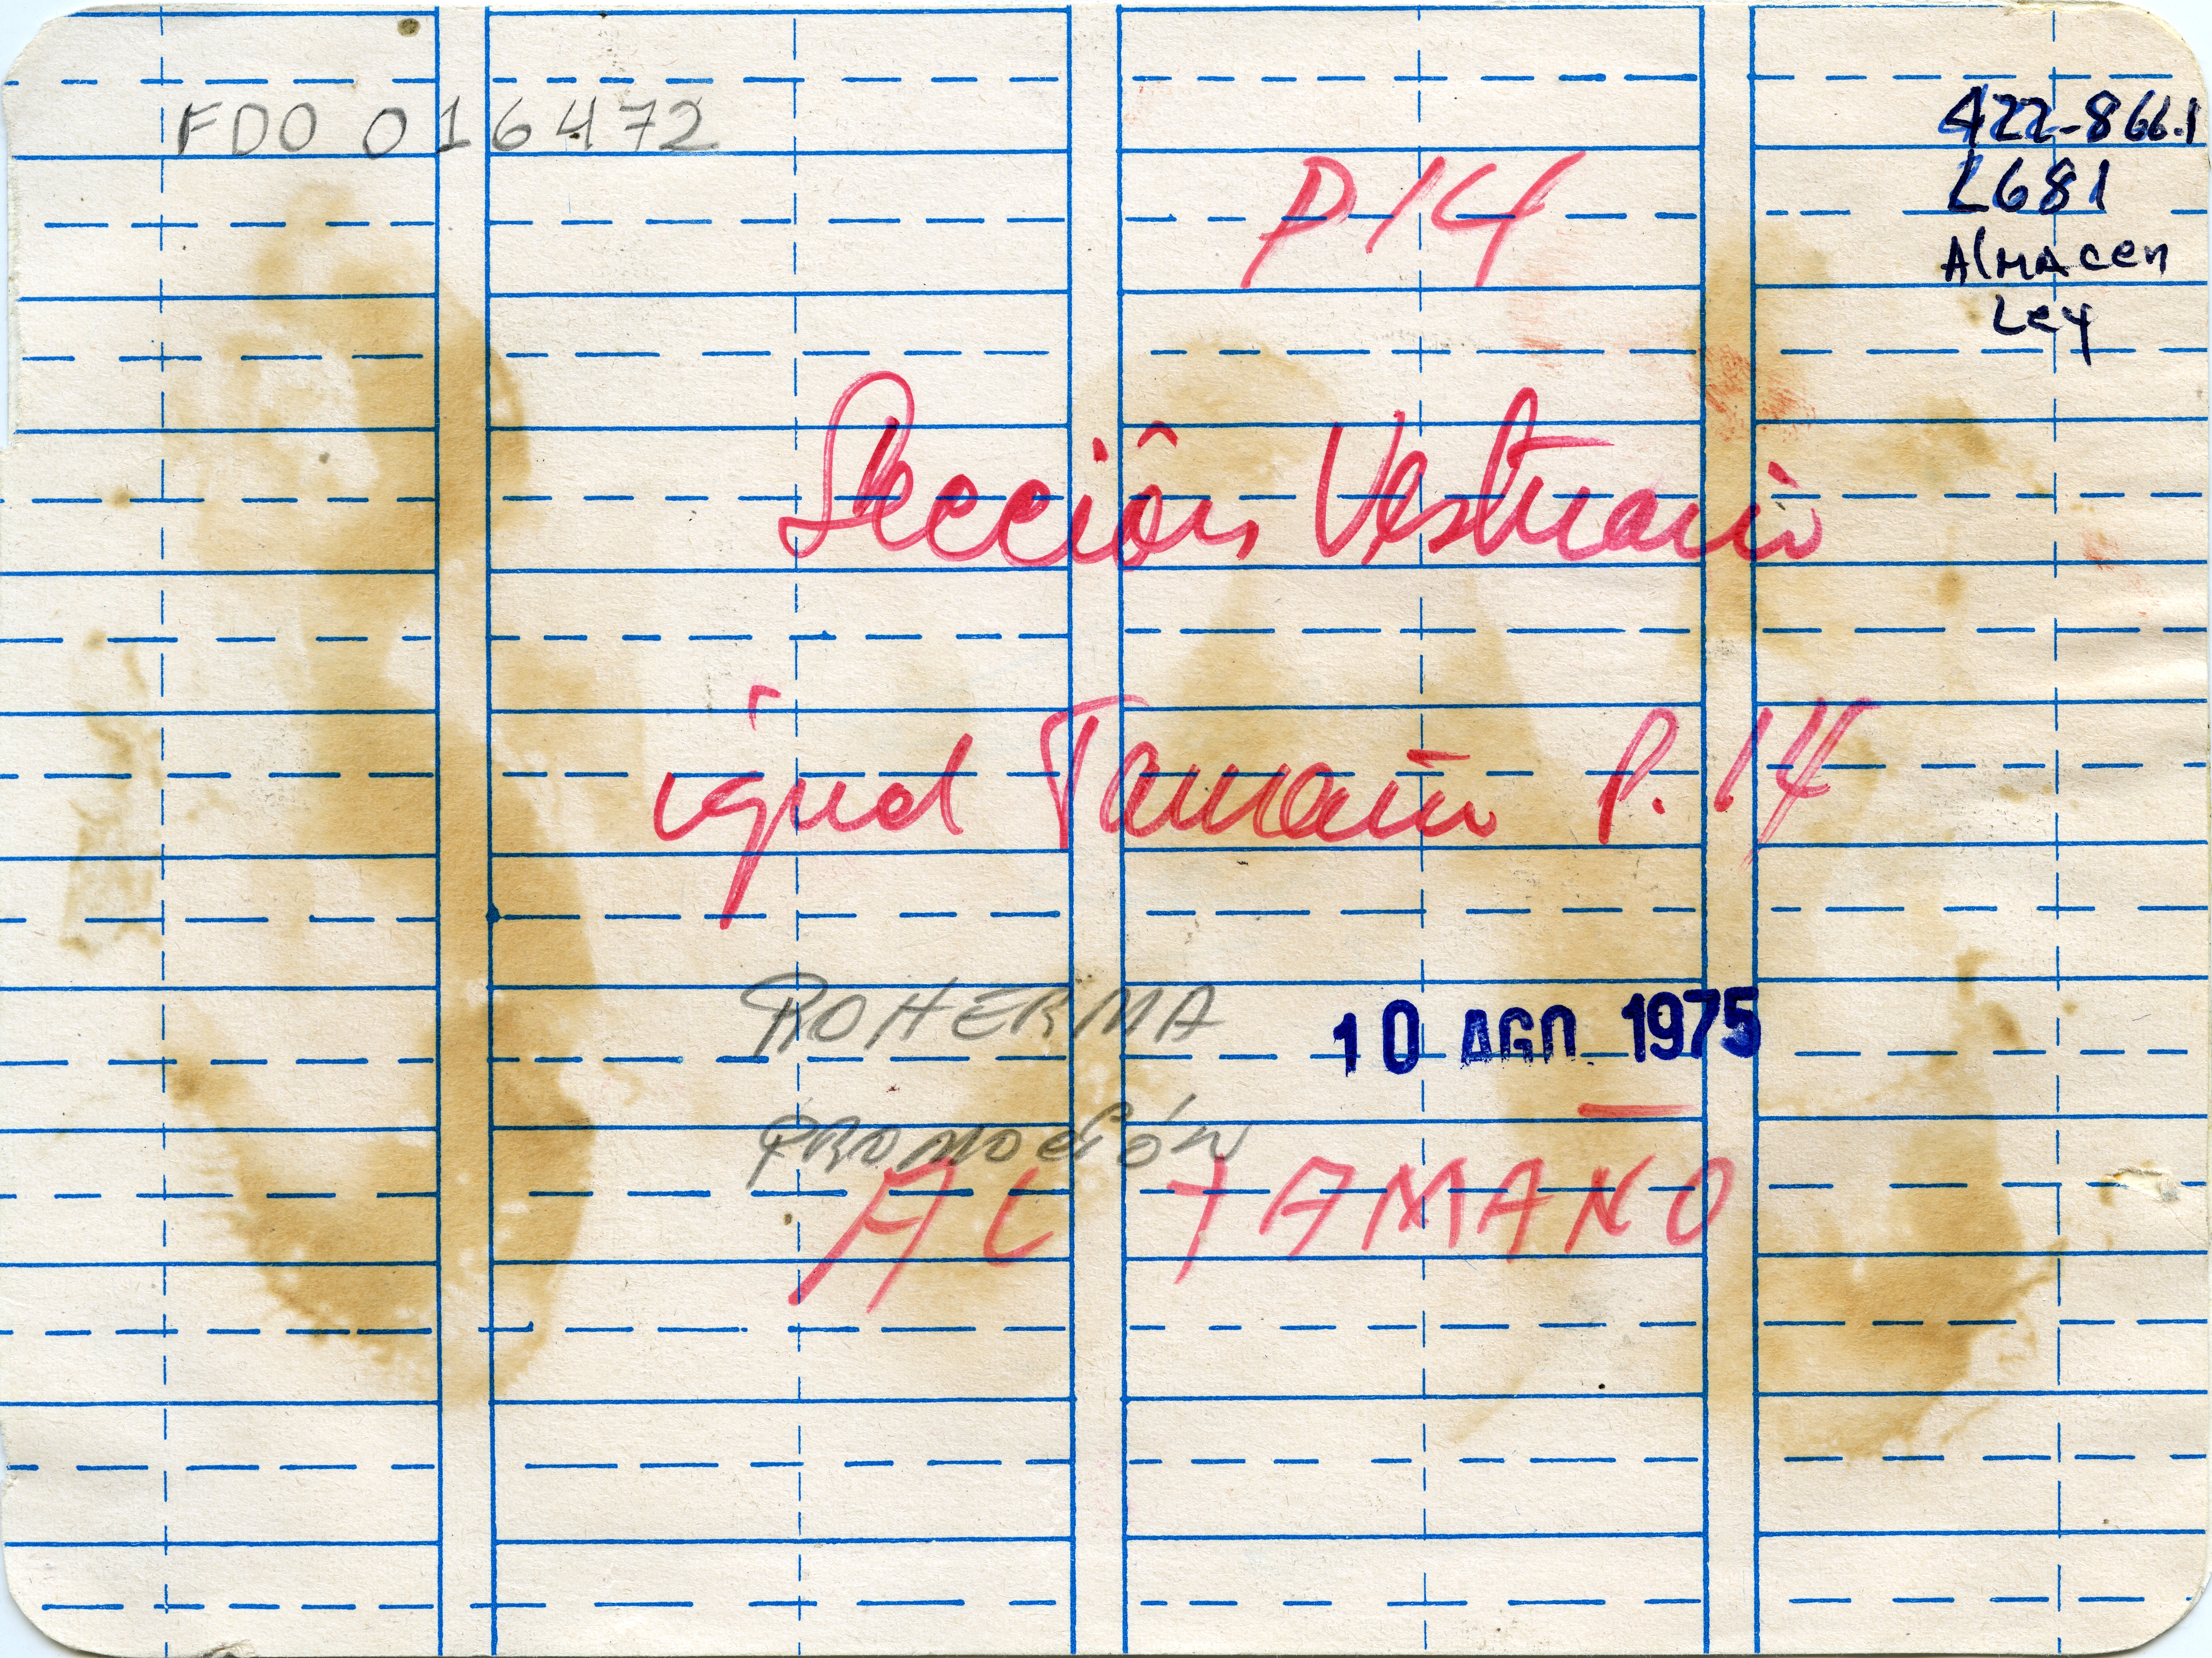 FDO 016472
422-866.1
L681
Almacen
Ley
P14
Sección Vestuario
igual Tamaño P. 14
ROHERMA
10 AGO. 1975
PROMOCIÓN
AL TAMAÑO